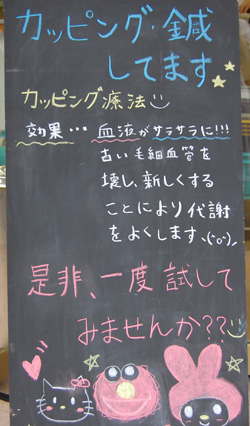 カッピング・鍼
してます
カッピング療法
効果…血液がサラサラに!!!
古い毛細血管を
壊し、新しくする
ことにより代謝
をよくします、(^o^)、
是非、一度試して
みませんか??